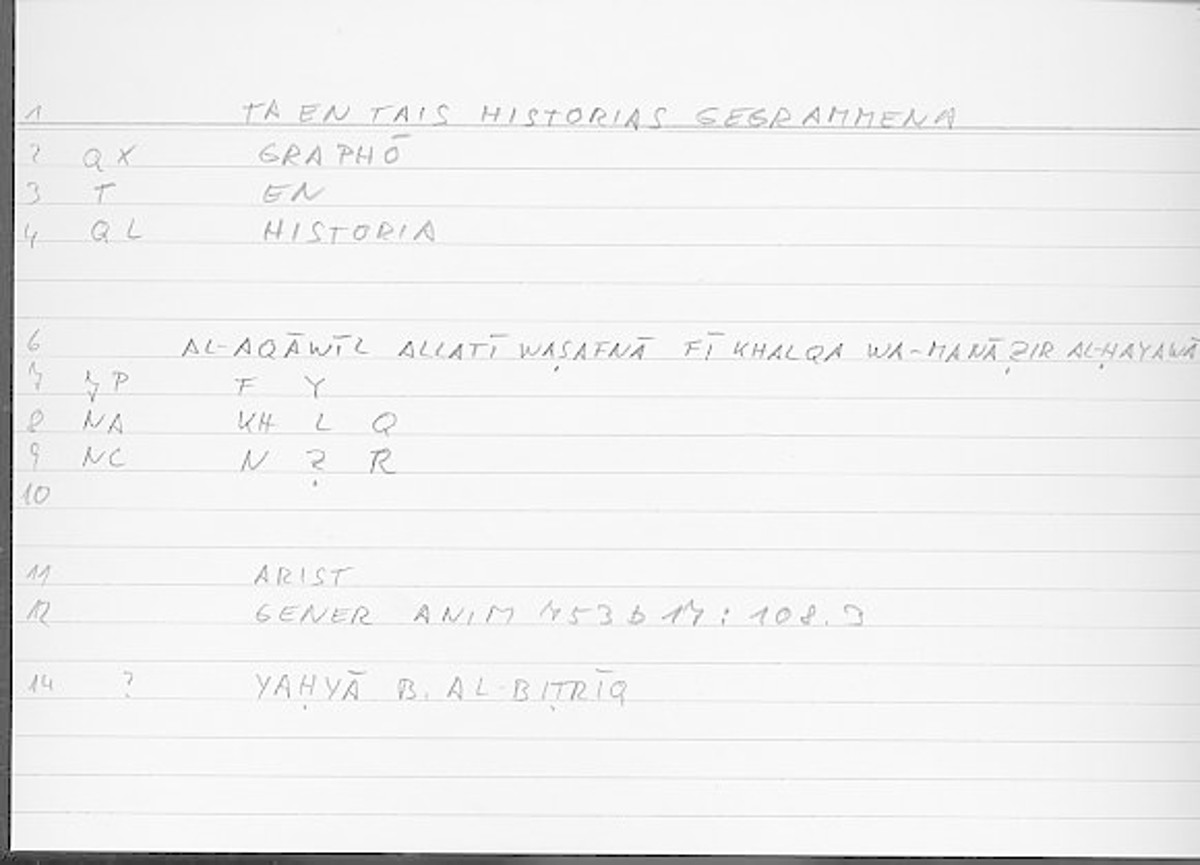 1 TA EN TAIS HISTORIAS GEGRAMMENA
2 QX GRAPHŌ
3 T EN
4 QL HISTORIA
6 AL-AQĀWĪL ALLATĪ WAṢAFNĀ FĪ KHALQA WA-MANĀẒIR AL-ḤAYAWĀ
7 7P F Y
8 NA KH L Q
9 NC N Ẓ R
10
11 ARIST
12 GENER ANIM 753 b 17 : 108.9
14 ? YAḤYĀ B. AL-BIṬRĪQ